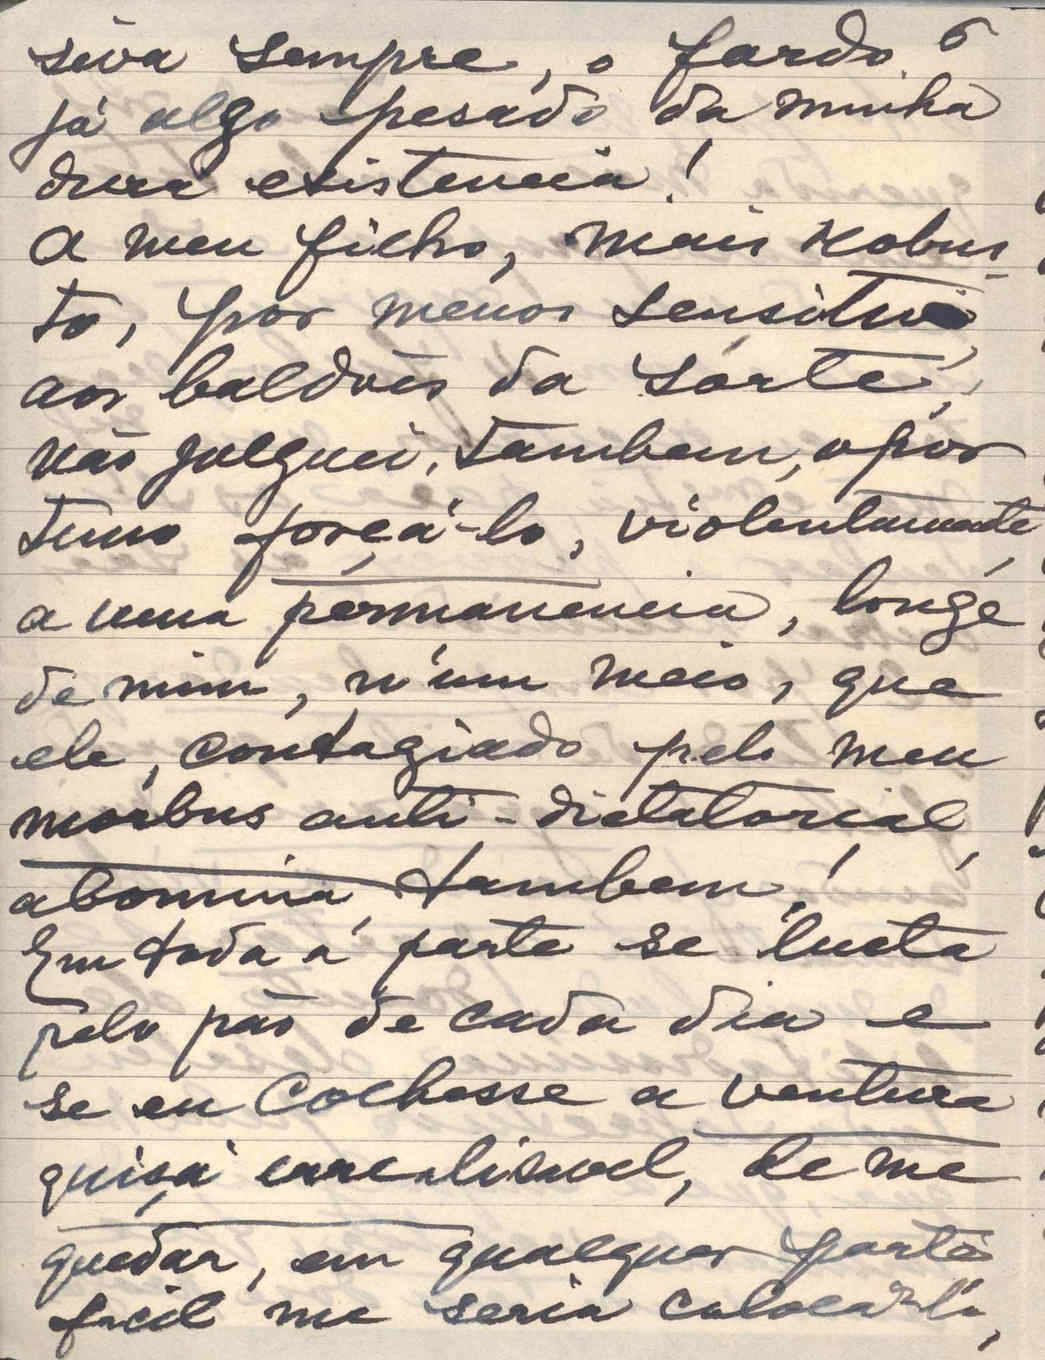 siva sempre, o fardo 6
já algo pesado da minha
dura existencia!
A meu filho, mais robus-
to, por menos sensitivo,
aos baldões da sórte,
não julguei, tambem, opor
tuno forçá-lo, violentamente,
a uma permanencia, longe
de mim, n'um meio, que
ele, contagiado pelo meu
morbus anti-dictatorial,
abomina, tambem!
Em toda a parte se lucta
pelo pão de cada dia e
se eu colhesse a ventura
quiçá irrealisavel, de me
quedar, em qualquer parte
facil me seria colocá-lo,